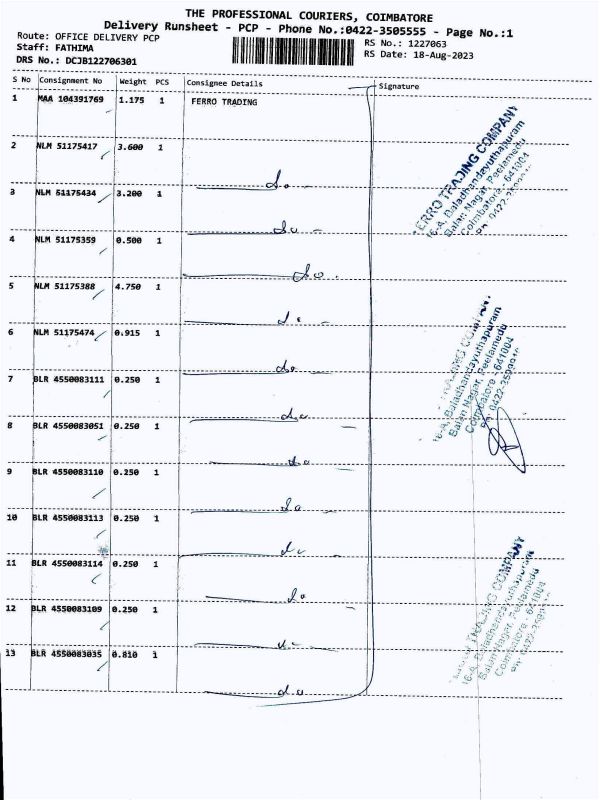 THE PROFESSIONAL COURIERS, COIMBATORE
Delivery Runsheet - PCP - Phone No.:0422-3505555 - Page No.:1
Route: OFFICE DELIVERY PCP
Staff: FATHIMA
DRS No.: DCJB122706301
RS No.: 1227063
RS Date: 18-Aug-2023
S No Consignment No Weight PCS Consignee Details Signature
1 MAA 104391769 1.175 1 FERRO TRADING
2 NLM 51175417 3.600 1
do
3 NLM 51175434 3.200 1
do
4 NLM 51175359 0.500 1
do
5 NLM 51175388 4.750 1
do
6 NLM 51175474 0.915 1
do
7 BLR 4550083111 0.250 1
do
8 BLR 4550083051 0.250 1
do
9 BLR 4550083110 0.250 1
do
10 BLR 4550083113 0.250 1
do
11 BLR 4550083114 0.250 1
do
12 BLR 4550083109 0.250 1
do
13 BLR 4550083035 0.810 1
do
FERRO TRADING COMPANY
16-A, Baladhandayuthapuram
Balan Nagar, Peelamedu
Coimbatore - 641004
TRADING COMPANY
16-A, Baladhandayuthapuram
Balan Nagar, Peelamedu
Coimbatore - 641004
TRADING COMPANY
16-A, Baladhandayuthapuram
Balan Nagar, Peelamedu
Coimbatore - 641004